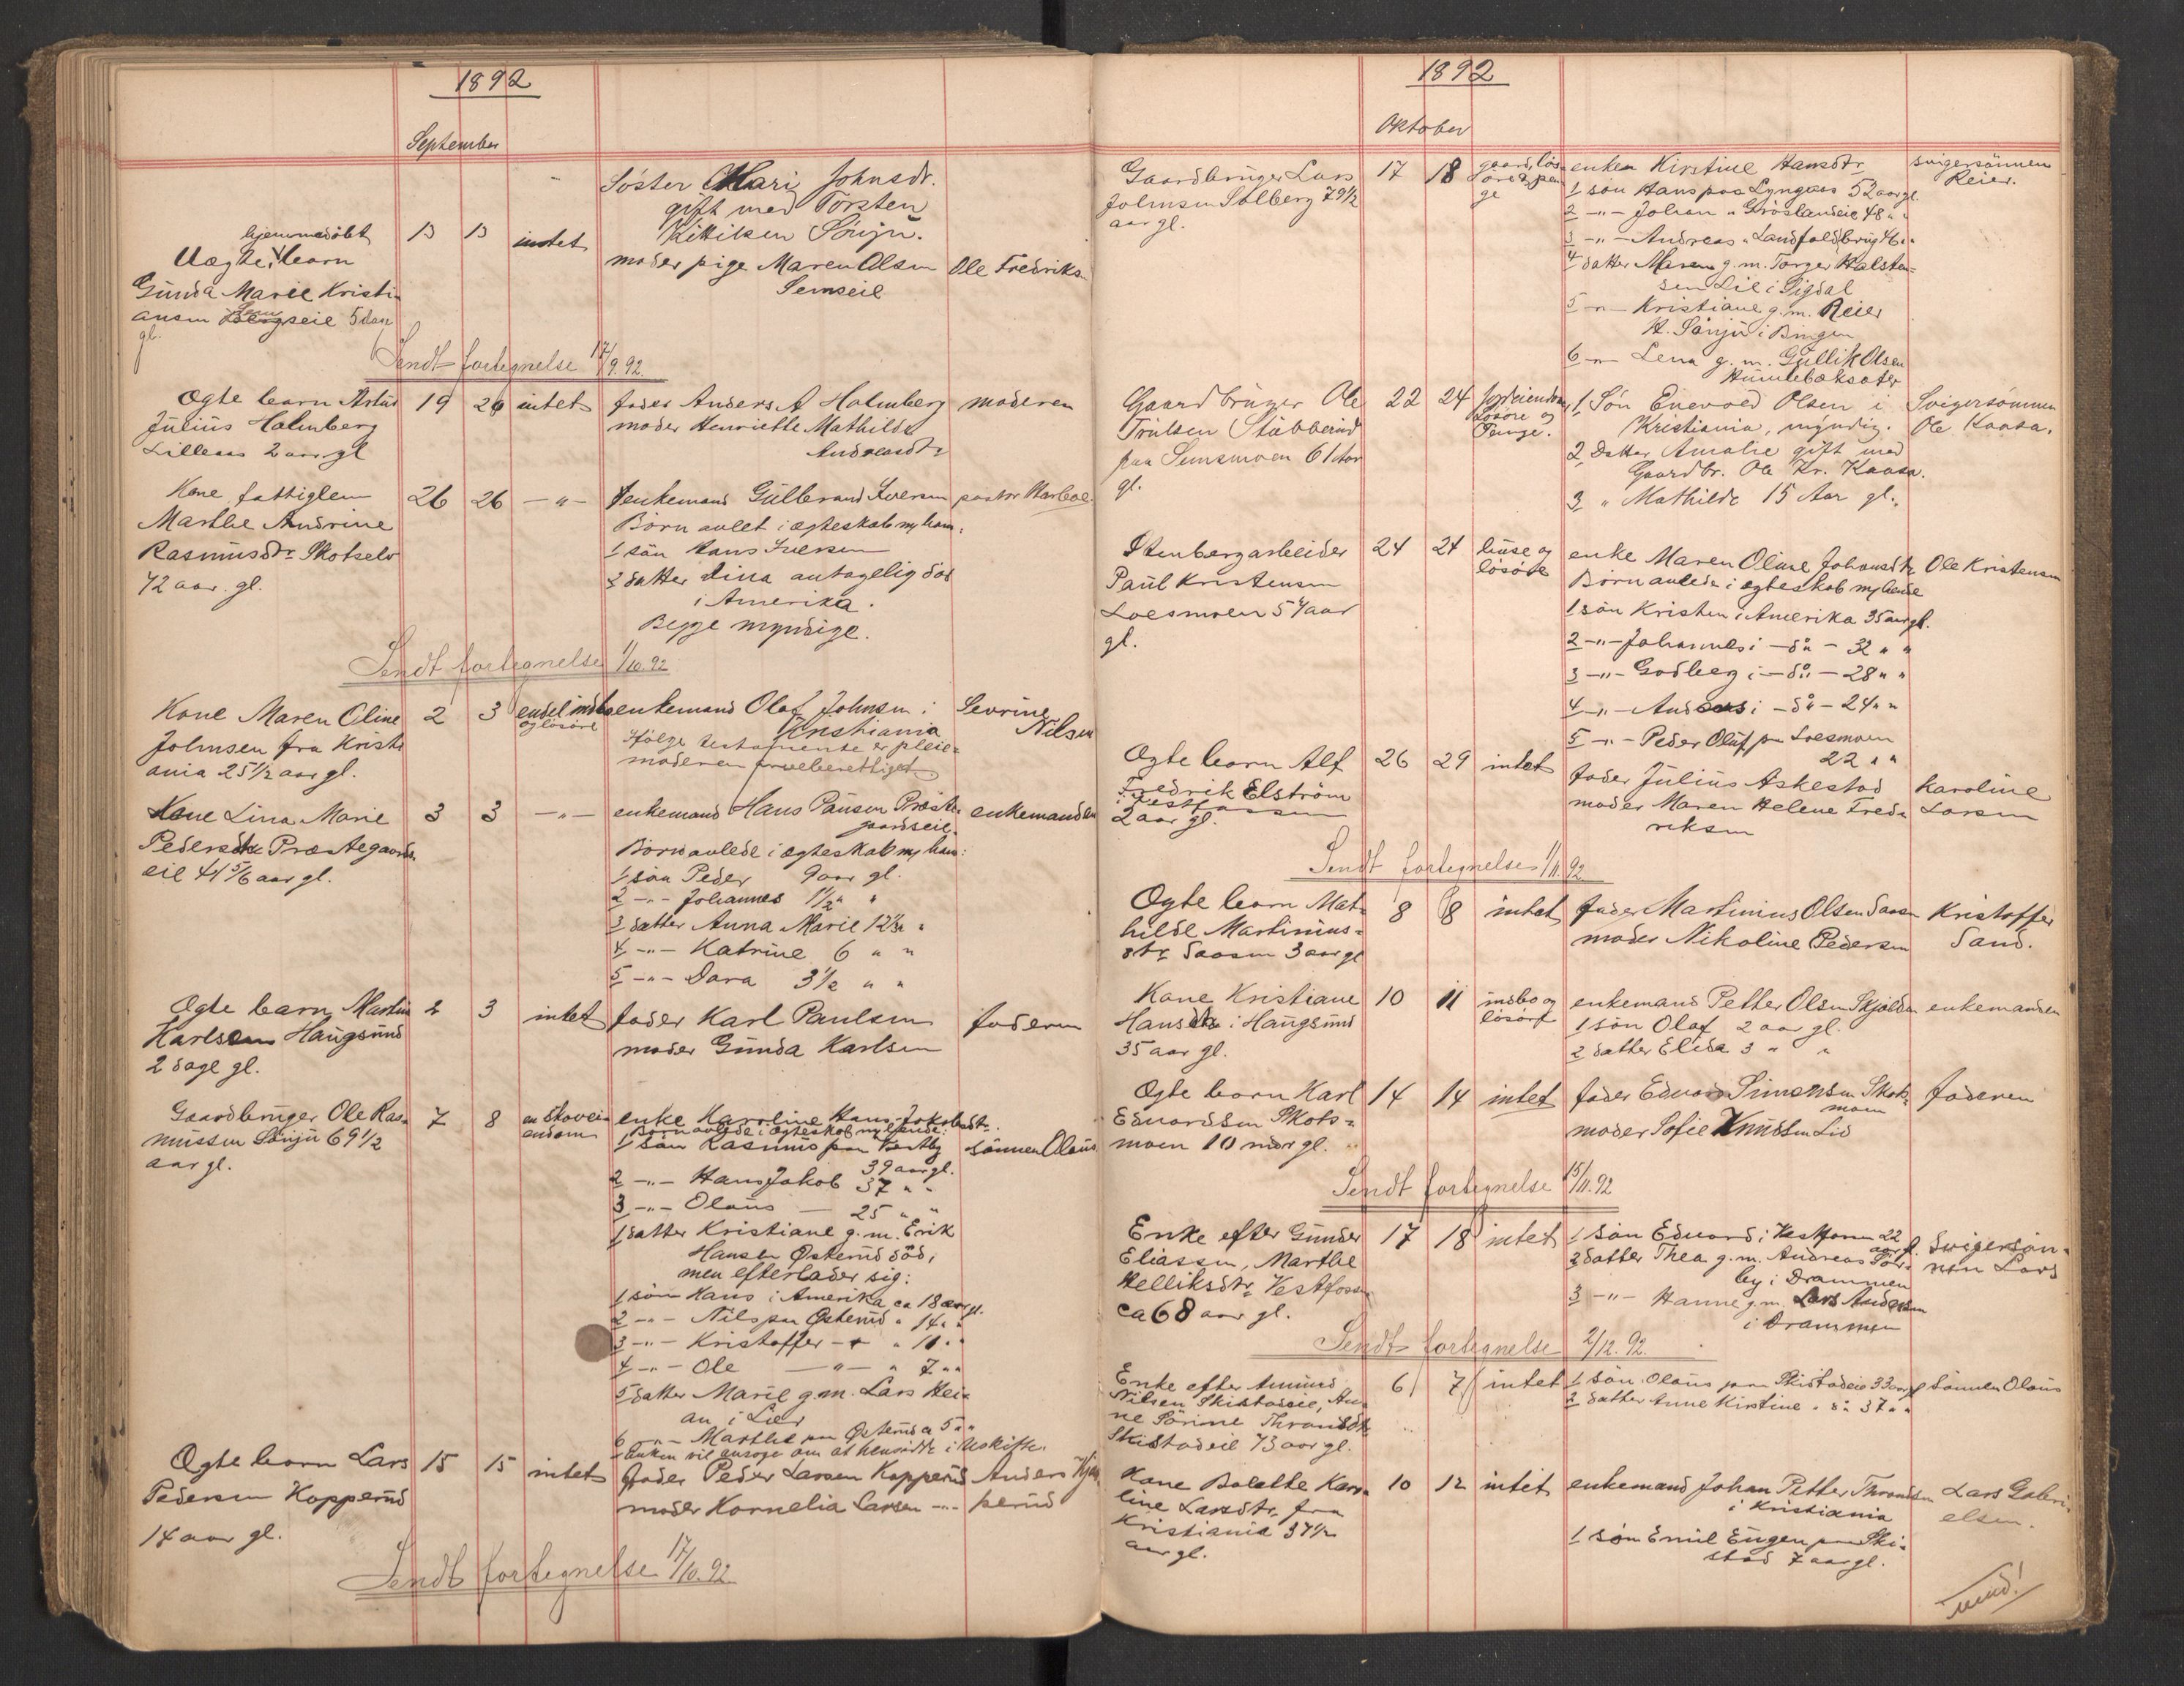 1892
September
Søster Mari Johnsdr.
gift med Torsten
Kittilsen Sønju.
hjemmedøbt
Uægte barn
Gunda Marie Kristi-
ansen Semseie 5 dage
gl.
13 13 intet
moder pige Maren Olsen
Semseie
Ole Fredriks.
Sendt fortegnelse 17/9.92.
Ægte barn Artur
Julius Holmberg
Lilleaas 2 aar gl
19 20 intet
fader Anders A Holmberg
moder Henriette Mathilde
Andreasdtr
moderen
Kone fattiglem
Marthe Andrine
Rasmusdtr Skotselv
72 aar. gl.
26 26 -"-
enkemand Gulbrand Iversen
Børn avlet i ægteskab m/ ham:
1 søn Hans Iversen
2 datter Lina antagelig død
i Amerika.
Begge myndige.
pastor Harboe.
Sendt fortegnelse 1/10.92
Kone Maren Oline
Johnsen fra Kristi
ania 25 1/2 aar gl.
2 3 endel indbo
og løsøre
enkemand Olaf Johnsen i
Kristiania
Ifølge testamente er pleie-
moderen arveberettiget
Sevrine
Nilsen
Kone Lina Marie
Pedersdtr Præstegaards
eie 41 5/6 aar gl.
3 3 -"-
enkemand Hans Pausen Præste-
gaardseie.
Børn avlede i ægteskab m/ ham:
1 søn Peder 9 aar gl.
2 -"- Johannes 1 1/2 " "
3 datter Anna Marie 12 1/2 "
4 -"- Katrine 6 " "
5 -"- Dora 3 1/2 " "
enkemanden
Ægte barn Martin
Karlsen Haugsund
2 dage gl.
2 3 intet
fader Karl Paulsen
moder Gunda Karlsen
faderen
Gaardbruger Ole Ras-
mussen Sønju 69 1/2
aar gl.
7 8 en skovei-
endom
enke Karoline Hans-Jakobsdtr.
Børn avlede i ægteskab m/ hende:
1 søn Rasmus paa
39 aar gl.
2 -"- Hans Jakob 37 " "
3 -"- Olaus — 25 " "
1 datter Kristiane g. m. Erik
Hansen Østerud død,
men efterlader sig:
1 søn Hans i Amerika ca 18 aar gl.
2 -"- Nils paa Østerud " 14 " "
3 -"- Kristoffer -"- " 11 " "
4 -"- Ole -"- " 7 " "
5 datter Marie g. m. Lars Hei-
an i Lier
6 -"- Marthe paa Østerud ca 5 " "
Enken vil ansøge om at hensidde i Uskifte.
sønnen Olaus
Ægte barn Lars
Pedersen Kopperud
14 aar gl.
15 15 intet
fader Peder Larsen Kopperud
moder Kornelia Larsen -"-
Anders
perud
Sendt fortegnelse 17/10.92
1892
Oktober
Gaardbruger Lars
Johnsen Solberg 79 1/2
aar gl.
17 18 gaard, løs-
øre & pen
ge
enken Kirstine Hansdtr
1 søn Hans paa Lyngaas 52 aar gl.
2 -"- Johan " Grøslandeie 48 " "
3 -"- Andreas " Landfaldbrug 46 " "
4 datter Maren g. m. Torger Halsten-
sen Lie i Sigdal
5 -"- Kristiane g. m. Reier
H. Sønju i Bingen
6 -"- Lena g. m. Gullik Olsen
Humlebæksæter
svigersønnen
Reier.
Gaardbruger Ole
Trulsen Stubberud
paa Semsmoen 61 Aar
gl.
22 24 Jordeiendom
Løsøre og
Penge.
1 Søn Enevold Olsen i
Kristiania, myndig.
2 Datter Amalie gift med
Gaardbr. Ole Kr. Kaasa.
3 " Mathilde 15 Aar gl.
Svigersønnen
Ole Kaasa.
Stenbergarbeider
Paul Kristensen
Loesmoen 54 aar
gl.
24 24 huse og
løsøre
enke Maren Oline Johansdtr
Børn avlede i ægteskab m/ hende
1 søn Kristen i Amerika 35 aar gl.
2 -"- Johannes i - do - 32 " "
3 -"- Godberg i - do - 28 " "
4 -"- Andreas i - do - 24 " "
5 -"- Peder Oluf paa Loesmoen
22 " "
Ole Kristensen
Ægte barn Alf
Fredrik Elstrøm
i Vestfossen
2 aar gl.
26 29 intet
fader Julius Askestad
moder Maren Helene Fred-
riksen
Karoline
Larsen
Sendt fortegnelse 1/11.92
Ægte barn Mat-
hilde Martinius-
dtr Saasen 3 aar gl
8 8 intet
fader Martinius Olsen Saasen
moder Nikoline Pedersen
Kristoffer
Sand.
Kone Kristiane
Hansdtr i Haugsund
35 aar gl.
10 11 indbo og
løsøre
enkemand Petter Olsen Skjolden
1 søn Olaf 2 aar gl.
2 datter Elida 3 " "
enkemanden
Ægte barn Karl
Edvardsen Skots-
moen 10 mdr gl.
14 14 intet
fader Edvard Simensen Skots-
moen
moder Sofie Knudsen Lid
faderen
Sendt fortegnelse 15/11.92
Enke efter Gunder
Eliassen, Marthe
Helliksdtr, Vestfossen
ca 68 aar gl.
17 18 intet
1 søn Edvard i Vestfossen 22
aar gl.
2 datter Thea g. m. Andreas Tor-
by i Drammen
3 -"- Hanne g. m. Lars Andersen
i Drammen
Svigersøn-
nen Lars
Sendt fortegnelse 2/12.92.
Enke efter Amund
Nilsen Skistadeie, An-
ne Sørine Throndsdtr
Skistadeie 73 aar gl.
6 7 intet
1 søn Olaus paa Skistadeie 33 aar gl
2 datter Anne Kirstine " do 37 " "
sønnen Olaus
Kone Bolette Karo-
line Larsdtr fra
Kristiania 37 1/2
aar gl.
10 12 intet
enkemand Johan Petter Throndsen
i Kristiania
1 søn Emil Eugen paa Ski-
stad 7 aar gl.
Lars Gabri-
elsen.
vend!